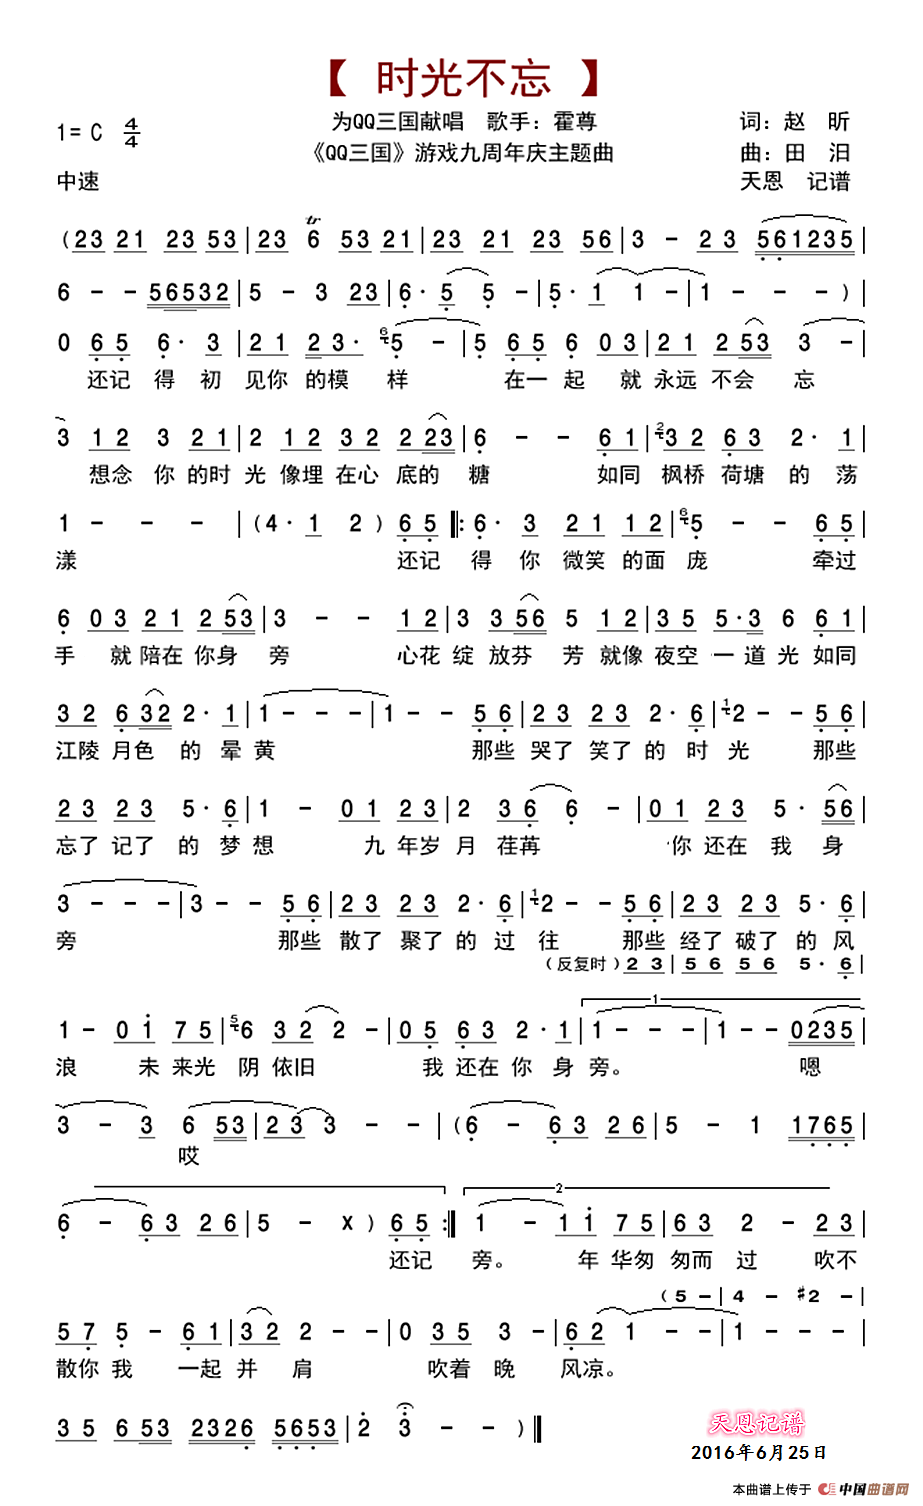 【 时光不忘 】
1= C 4/4
为QQ三国献唱 歌手：霍尊
词：赵 昕
《QQ三国》游戏九周年庆主题曲
曲：田 汨
中速
天恩 记谱
(23 21 23 53 | 23 6 53 21 | 23 21 23 56 | 3 - 23 561235 |
6 - - 56532 | 5 - 3 23 | 6· 5 5 - | 5· 1 1 - | 1 - - - ) |
0 65 6· 3 | 21 23· 65 - | 5 65 6 03 | 21 253 3 - |
还记 得 初 见你 的模 样 在一 起 就 永远 不会 忘
3 12 3 21 | 2 12 32 223 | 6 - - 61 | 232 63 2· 1 |
想念 你 的时 光 像埋 在心 底的 糖 如同 枫桥 荷塘 的 荡
1 - - - | (4· 1 2) 65 |: 6· 3 21 12 | 65 - - 65 |
漾 还记 得 你 微笑 的面 庞 牵过
6 03 21 253 | 3 - - 12 | 3 356 5 12 | 35 5·3 6 61 |
手 就 陪在 你身 旁 心花 绽 放芬 芳 就像 夜空 一 道 光 如同
32 632 2· 1 | 1 - - - | 1 - - 56 | 23 23 2· 6 | 12 - - 56 |
江陵 月色 的 晕 黄 那些 哭了 笑了 的 时 光 那些
23 23 5· 6 | 1 - 01 23 | 2 36 6 - | 01 23 5· 56 |
忘了 记了 的 梦 想 九 年岁 月 荏苒 你 还在 我 身
3 - - - | 3 - - 56 | 23 23 2· 6 | 12 - - 56 | 23 23 2· 6 |
旁 那些 散了 聚了 的 过 往 那些 经了 破了 的 风
(反复时) 23 | 56 56 5· 6 |
1 - 01 75 | 56 32 2 - | 05 63 2· 1 | 1 - - - | 1 - - 0235 |
浪 未 来光 阴 依旧 我 还在 你 身 旁。 嗯
3 - 3 6 53 | 23 3 - - | (6 - 63 26 | 5 - 1 1765 |
哎
6 - 63 26 | 5 - X ) 65 :| 1 - 11 75 | 63 2 - 23 |
还记 旁。 年 华匆 匆而 过 吹不
(5 - | 4 - #2 - |
57 5 - 61 | 32 2 - - | 0 35 3 5 | 62 1 - | 1 - - - |
散你 我 一起 并 肩 吹着 晚 风凉。
35 653 2326 5653 | 2 3 - - ||
天恩记谱
2016年6月25日
本曲谱上传于 中国曲谱网